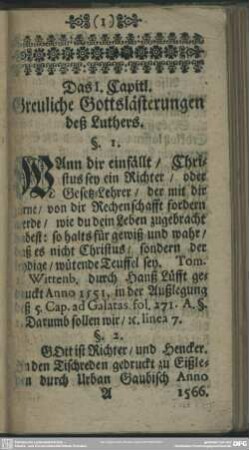 (1)
Das I. Capitl.
Greuliche Gottslästerungen
deß Luthers.
§. 1.
WAnn dir einfällt / Chri-
stus sey ein Richter / oder
Gesetz-Lehrer / der mit dir
rne / von dir Rechenschafft fordern
erde / wie du dein Leben zugebracht
best: so halts für gewiß und wahr /
aß es nicht Christus / sondern der
ndige / wütende Teuffel sey. Tom.
Wittenb. durch Hanß Lüfft ge-
uckt Anno 1551. in der Außlegung
ß 5. Cap. ad Galatas. fol. 271. A. §.
Darumb sollen wir / ꝛc. linea 7.
§. 2.
GOtt ist Richter / und Hencker.
den Tischreden gedruckt zu Eißle-
n durch Urban Gaubisch Anno
A 1566.